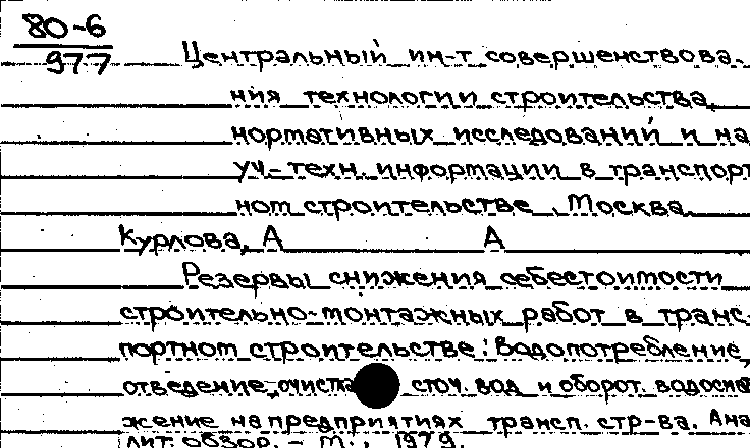 80-6
977
Центральный ин-т совершенствова-
ния технологии строительства,
нормативных исследований и на
уч-техн. информации в транспорт
ном строительстве, Москва.
Курлова, А А
Резервы снижения себестоимости
строительно-монтажных работ в транс-
портном строительстве: Водопотребление,
отведение, очистка сточ. вод и оборот. водосна
жение на предприятиях трансп. стр-ва. Ана
лит. обзор. - М., 1979.